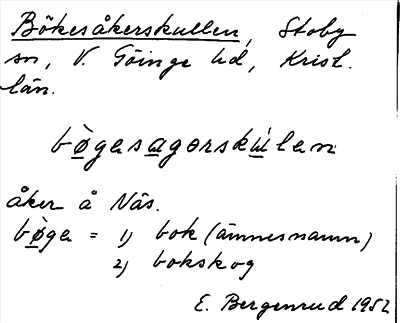 Bökesåkerskullen, Stoby
sn, V. Göinge hd, Krist.
län.
bø̀gasagorskúlan
åker å Näs.
bøga = 1) bok (ämnesnamn)
2) bokskog
E. Bergenrud 1952